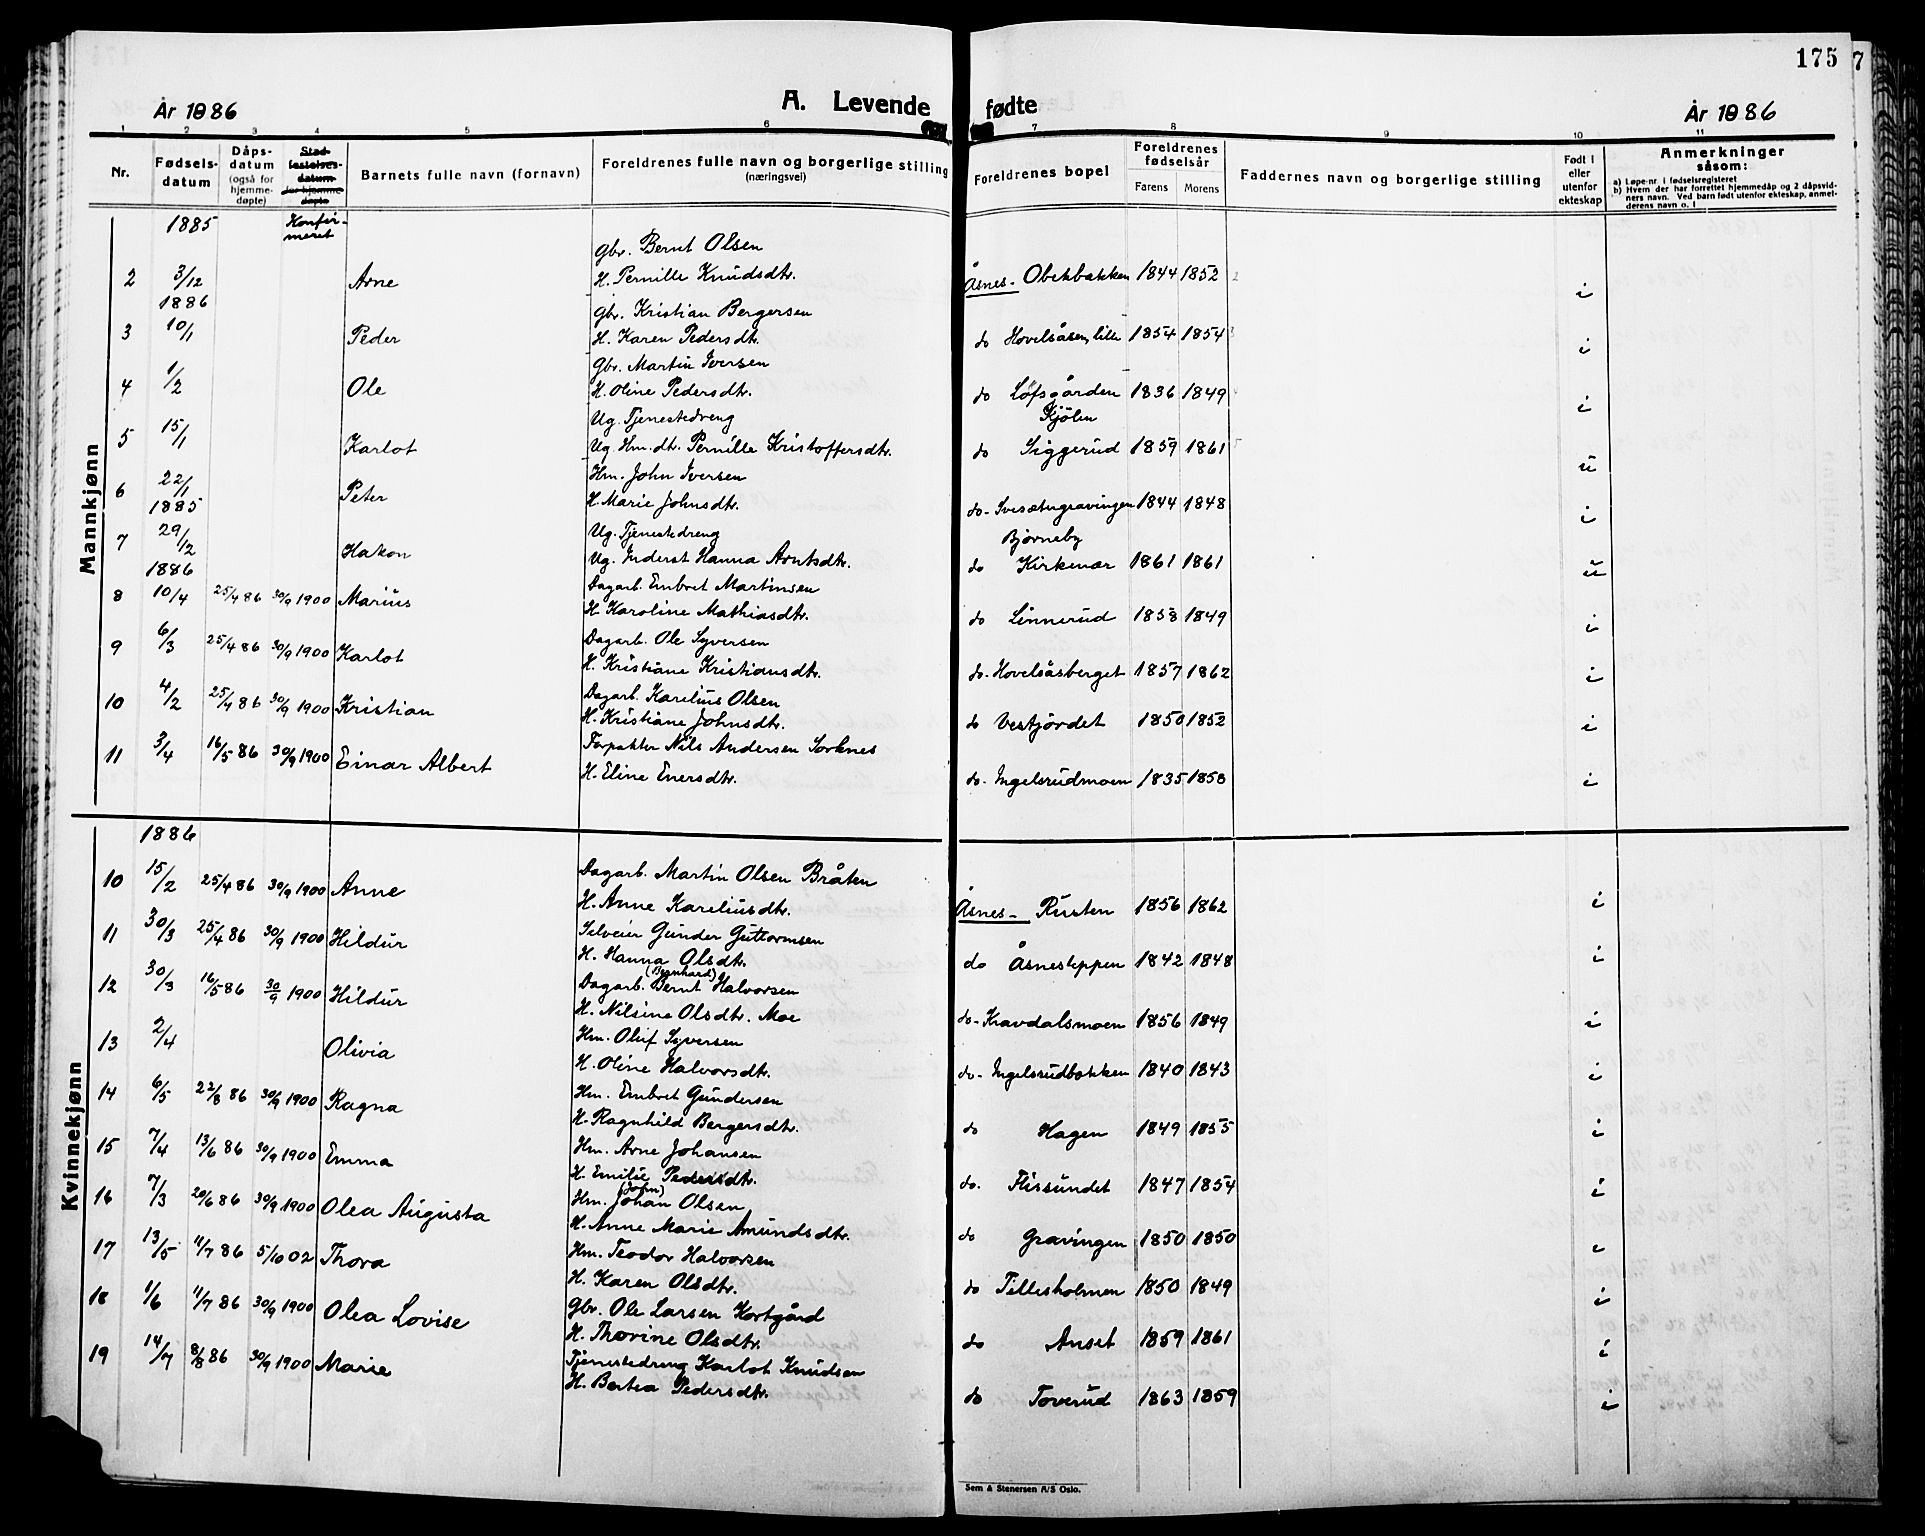 175
7
År 1886
A. Levende fødte
År 1886
1 2 3 4 5 6 7 8 9 10 11
Nr.
Fødsels-datum
Dåps-datum (også for hjemme-døpte)
Stad-festelses-datum for hjemme-døpte
Barnets fulle navn (fornavn)
Foreldrenes fulle navn og borgerlige stilling (næringsvei)
Foreldrenes bopel
Foreldrenes fødselsår
Farens
Morens
Faddernes navn og borgerlige stilling
Født i eller utenfor ekteskap
Anmerkninger såsom:
a) Løpe-nr i fødselsregisteret
b) Hvem der har forrettet hjemmedåp og 2 dåpsvid-
ners navn. Ved barn født utenfor ekteskap, anmel-
derens navn o. l
Mannkjønn
1885 Konfir-
meret
Gbr. Bernt Olsen
2 3/12 Arne H. Pernille Knudsdtr. Åsnes- Obekbakken 1844 1852 i
1886 Gbr. Kristian Bergersen
3 10/1 Peder H. Karen Pedersdtr. do Hovelsåsen, lille 1854 1854 i
Gbr. Martin Iversen
4 1/2 Ole H. Oline Pedersdtr. do Löfsgården 1836 1849 i
Ug. Tjenestedreng Kjölen
5 15/1 Karlot Ug. Hm. dtr. Pernille Kristoffersdtr. do Siggerud 1859 1861 u
Hm. John Iversen
6 22/1 Peter H. Marie Johnsdtr. do- Svesætergravingen 1844 1848 i
1885 Ug. Tjenestedreng Bjørneby
7 29/12 Hakon Ug. Inderst Hanna Arntsdtr. do Kirkenær 1861 1861 u
1886 Dagarb. Embret Martinsen
8 10/4 25/4 86 30/9 1900 Marius H. Karoline Mathiasdtr. do Linnerud 1858 1849 i
Dagarb. Ole Syversen
9 6/3 25/4 86 30/9 1900 Karlot H. Kristiane Kristiansdtr. do- Hovelsåsberget 1857 1862 i
Dagarb. Karelius Olsen
10 4/2 25/4 86 30/9 1900 Kristian H. Kristiane Johnsdtr. do Vestjordet 1850 1852 i
Forpakter Nils Andersen Sorknes
11 3/4 16/5 86 30/9 1900 Einar Albert H. Eline Enersdtr. do- Ingelsrudmoen 1835 1850 i
Kvinnekjønn
1886
Dagarb. Martin Olsen Bråten
10 15/2 25/4 86 30/9 1900 Anne H. Anne Kareliusdtr. Åsnes- Rusten 1856 1862 i
Selveier Gunder Guttormsen
11 30/3 25/4 86 30/9 1900 Hildur H. Hanna Olsdtr. do Åsneseppen 1842 1848 i
(Bernhard)
Dagarb. Bernt Halvorsen
12 30/3 16/5 86 30/9 1900 Hildur H. Nilsine Olsdtr. Moe do- Kravdalsmoen 1856 1849 i
Hm. Oluf Syversen
13 2/4 Olivia H. Oline Halvorsdtr. do- Ingelsrudbakken 1840 1843 i
Hm. Embret Gundersen
14 6/5 22/8 86 30/9 1900 Ragna H. Ragnhild Bergersdtr. do Hagen 1849 1855 i
Hm. Arne Johansen
15 7/4 13/6 86 30/9 1900 Emma H. Emilie Pedersdtr. do. Flissundet 1847 1854 i
(John)
Hm. Johan Olsen
16 7/3 20/6 86 30/9 1900 Olea Augusta H. Anne Marie Amundsdtr. do Gravingen 1850 1850 i
Hm. Teodor Halvorsen
17 13/5 11/7 86 5/10 02 Thora H. Karen Olsdtr. do Tillesholmen 1850 1849 i
Gbr. Ole Larsen Kortgård
18 1/6 11/7 86 30/9 1900 Olea Lovise H. Thorine Olsdtr. do Anset 1859 1861 i
Tjenestedreng Karlot Knudsen
19 14/7 8/8 86 30/9 1900 Marie H. Bertea Pedersdtr. do Toverud 1863 1859 i
Sem & Stenersen A/S Oslo.